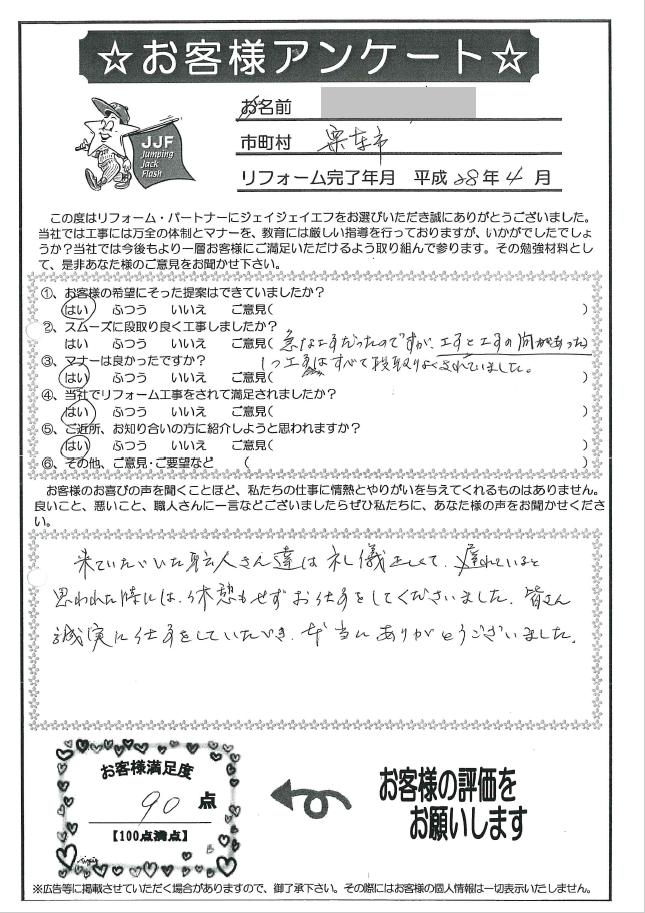 ☆お客様アンケート☆
お名前
JJF
Jumping
Jack
Flash
市町村 栗東市
リフォーム完了年月 平成28年4月
この度はリフォーム・パートナーにジェイジェイエフをお選びいただき誠にありがとうございました。
当社では工事には万全の体制とマナーを、教育には厳しい指導を行っておりますが、いかがでしたでしょ
うか？当社では今後もより一層お客様にご満足いただけるよう取り組んで参ります。その勉強材料とし
て、是非あなた様のご意見をお聞かせ下さい。
①、お客様の希望にそった提案はできていましたか？
はい ふつう いいえ ご意見( )
②、スムーズに段取り良く工事しましたか？
はい ふつう いいえ ご意見(急な工事だったのですが、工事と工事の間があった)
1つ工事はすべて段取りよくされていました。
③、マナーは良かったですか？
はい ふつう いいえ ご意見( )
④、当社でリフォーム工事をされて満足されましたか？
はい ふつう いいえ ご意見( )
⑤、ご近所、お知り合いの方に紹介しようと思われますか？
はい ふつう いいえ ご意見( )
⑥、その他、ご意見・ご要望など ( )
お客様のお喜びの声を聞くことほど、私たちの仕事に情熱とやりがいを与えてくれるものはありません。
良いこと、悪いこと、職人さんに一言などございましたらぜひ私たちに、あなた様の声をお聞かせくださ
い。
来ていただいた職人さん達は礼儀正しくて、遅れていると
思われた時には、休憩もせずお仕事をしてくださいました。皆さん
誠実に仕事をしていただき、本当にありがとうございました。
お客様満足度
90 点
【100点満点】
お客様の評価を
お願いします
※広告等に掲載させていただく場合がありますので、御了承下さい。その際にはお客様の個人情報は一切表示いたしません。